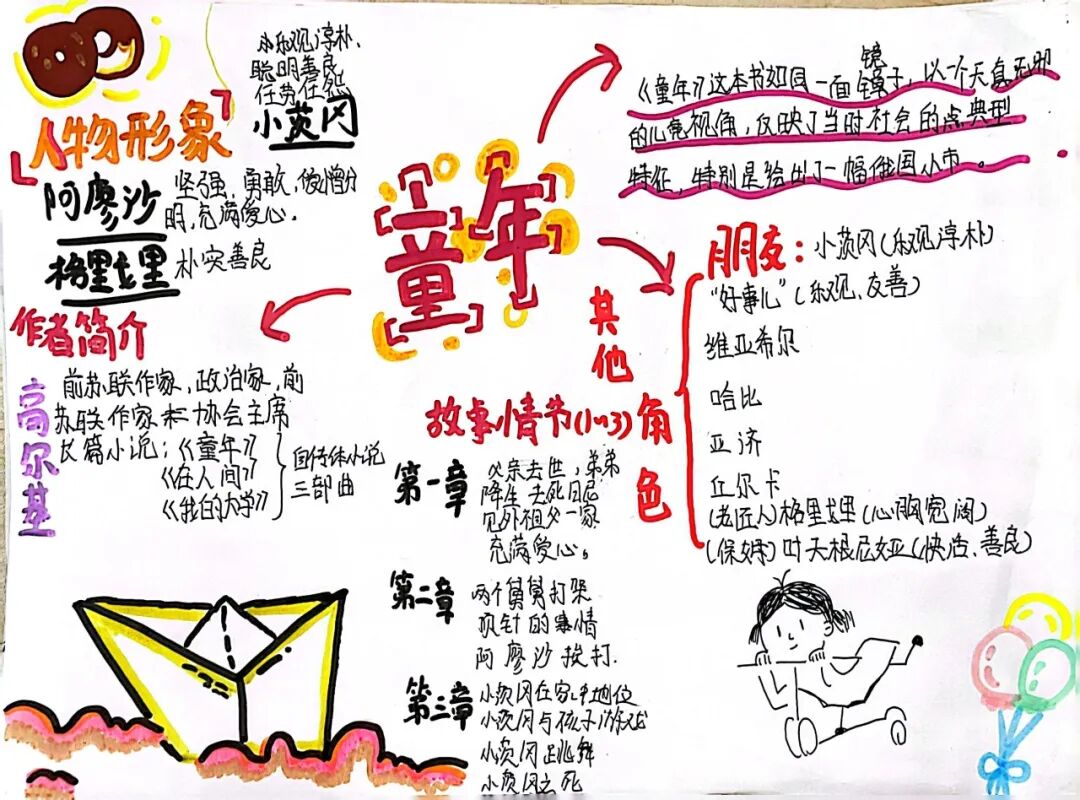 小乐观淳朴、
聪明善良
任劳任怨
小茨冈
人物形象
阿廖沙
坚强,勇敢,爱憎分
明,充满爱心。
格里戈里
朴实善良
童年
镜
《童年》这本书如同一面镜子,以一个天真无邪
的儿童视角,反映了当时社会的点典型
特征,特别是绘出了一幅俄国小市。
作者简介
高尔基
前苏联作家,政治家,前
苏联作家 协会主席
长篇小说:《童年》
《在人间》
《我的大学》
自传体小说
三部曲
其他角色
朋友:小茨冈(乐观淳朴)
“好事儿”(乐观、友善)
维亚希尔
哈比
亚济
丘尔卡
(老匠人)格里戈里(心胸宽阔)
(保姆)叶夫根尼娅(快活、善良)
故事情节(1~3)
第一章
父亲去世,弟弟
降生 去
见外祖父一家
充满爱心。
第二章
两个舅舅打架
顶针的事情
阿廖沙挨打.
第三章
小茨冈在家中地位
小茨冈与孩子游戏
小茨冈跳舞
小茨冈之死